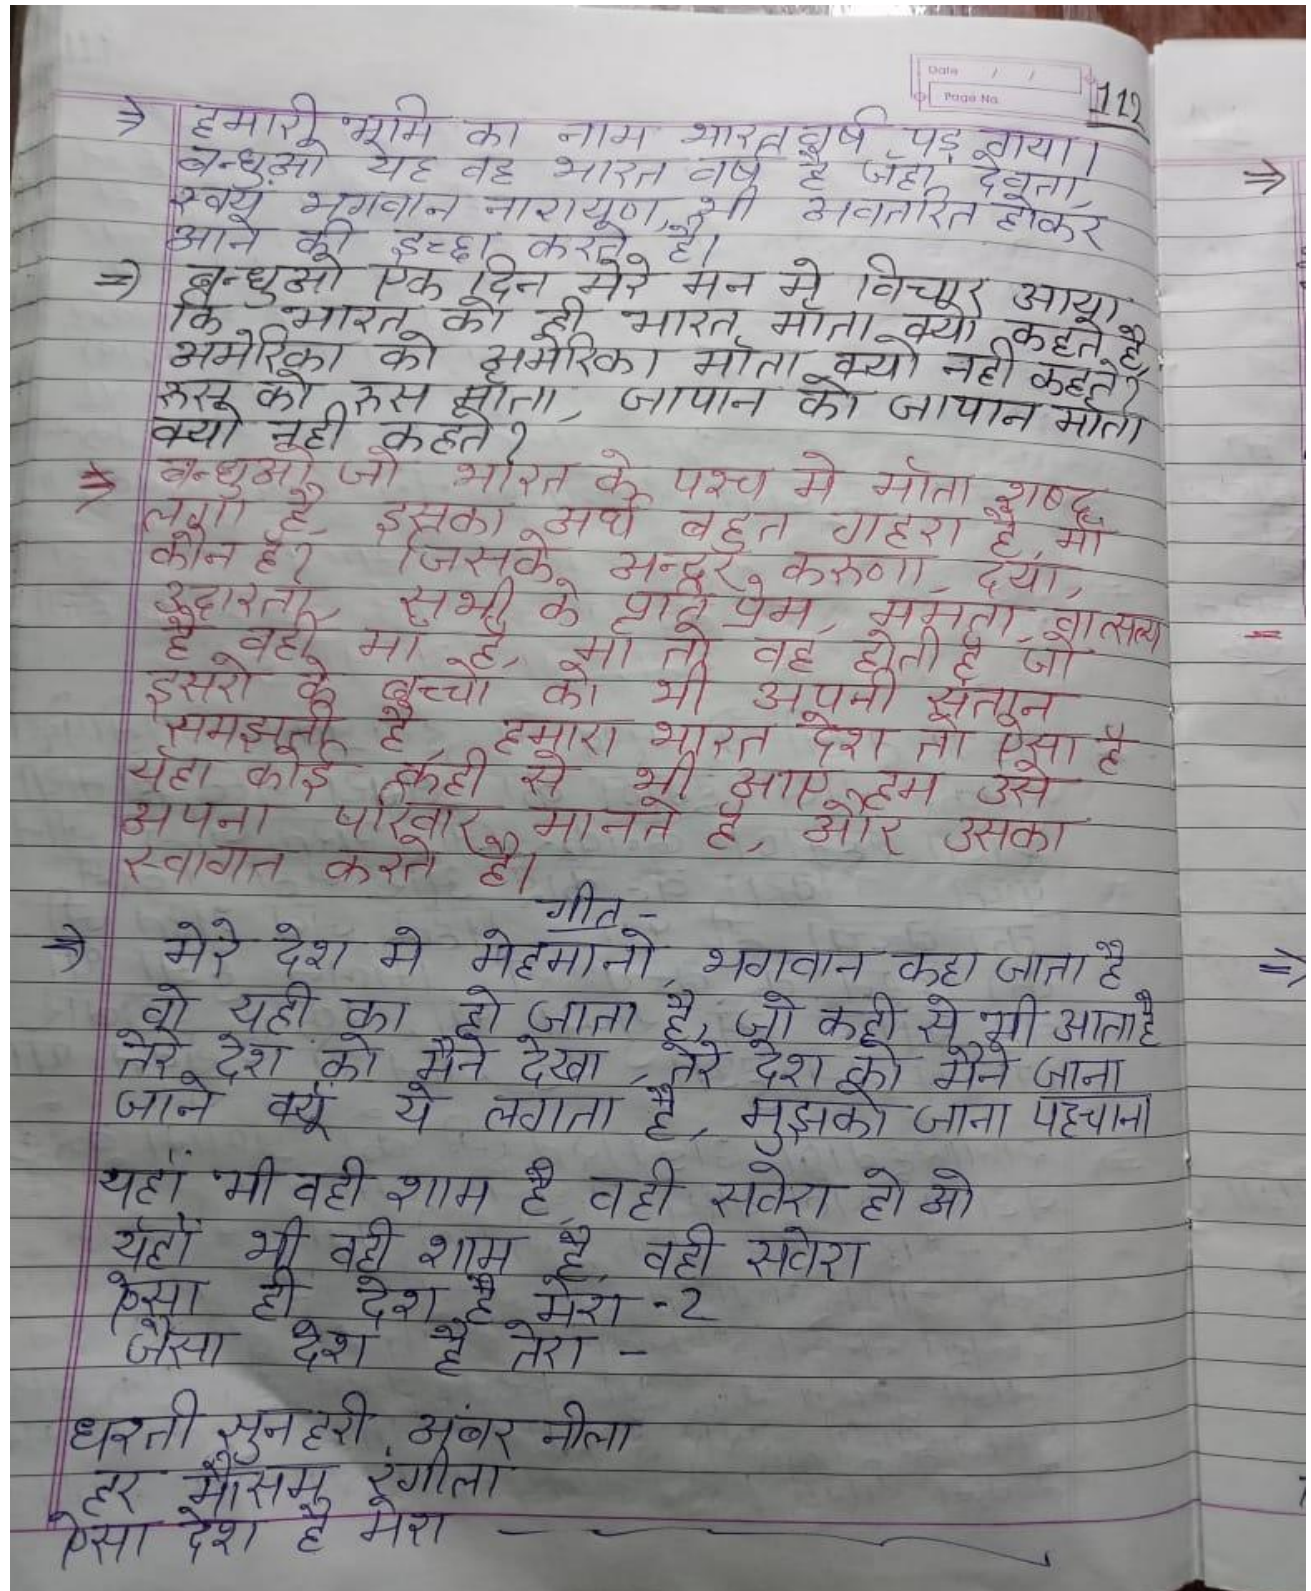 Date / /
Page No
112
⇒ हमारी भूमि का नाम भारतवर्ष पड़ गया।
बन्धुओ यह वह भारत वर्ष है जँहा देवता,
स्वयं भगवान नारायण, भी अवतरित होकर
आने की इच्छा करते है।
⇒ बन्धुओ एक दिन मेरे मन मे विचार आया
कि भारत को ही भारत माँता क्यो कहते है,
अमेरिका को अमेरिका माँता क्यो नही कहते?
रूस को रूस माँता, जापान को जापान माँता
क्यो नही कहते?
⇒ बन्धुओ जो भारत के पश्च मे माँता शब्द
लगा है, इसका अर्थ बहुत गहरा है, माँ
कौन है? जिसके अन्दर करुणा, दया,
उदारता, सभी के प्रति प्रेम, ममता, वात्सल्य
है वही माँ है, माँ तो वह होती है जो
दुसरो के बच्चो को भी अपनी संतान
समझती है, हमारा भारत देश तो ऐसा है
यँहा कोई कही से भी आए, हम उसे
अपना परिवार मानते है, और उसका
स्वागत करते है।
गीत -
⇒ मेरे देश मे मेहमानो, भगवान कहा जाता है
वो यही का हो जाता है, जो कही से भी आता है
तेरे देश को मैने देखा, तेरे देश को मैने जाना
जाने क्यूं ये लगता है, मुझको जाना पहचाना
यहाँ भी वही शाम है, वही सवेरा हो ओ
यँहाँ भी वही शाम है, वही सवेरा
ऐसा ही देश है मेरा -2
जैसा देश है तेरा -
धरती सुनहरी, अंबर नीला
हर मौसम रंगीला
ऐसा देश है मेरा